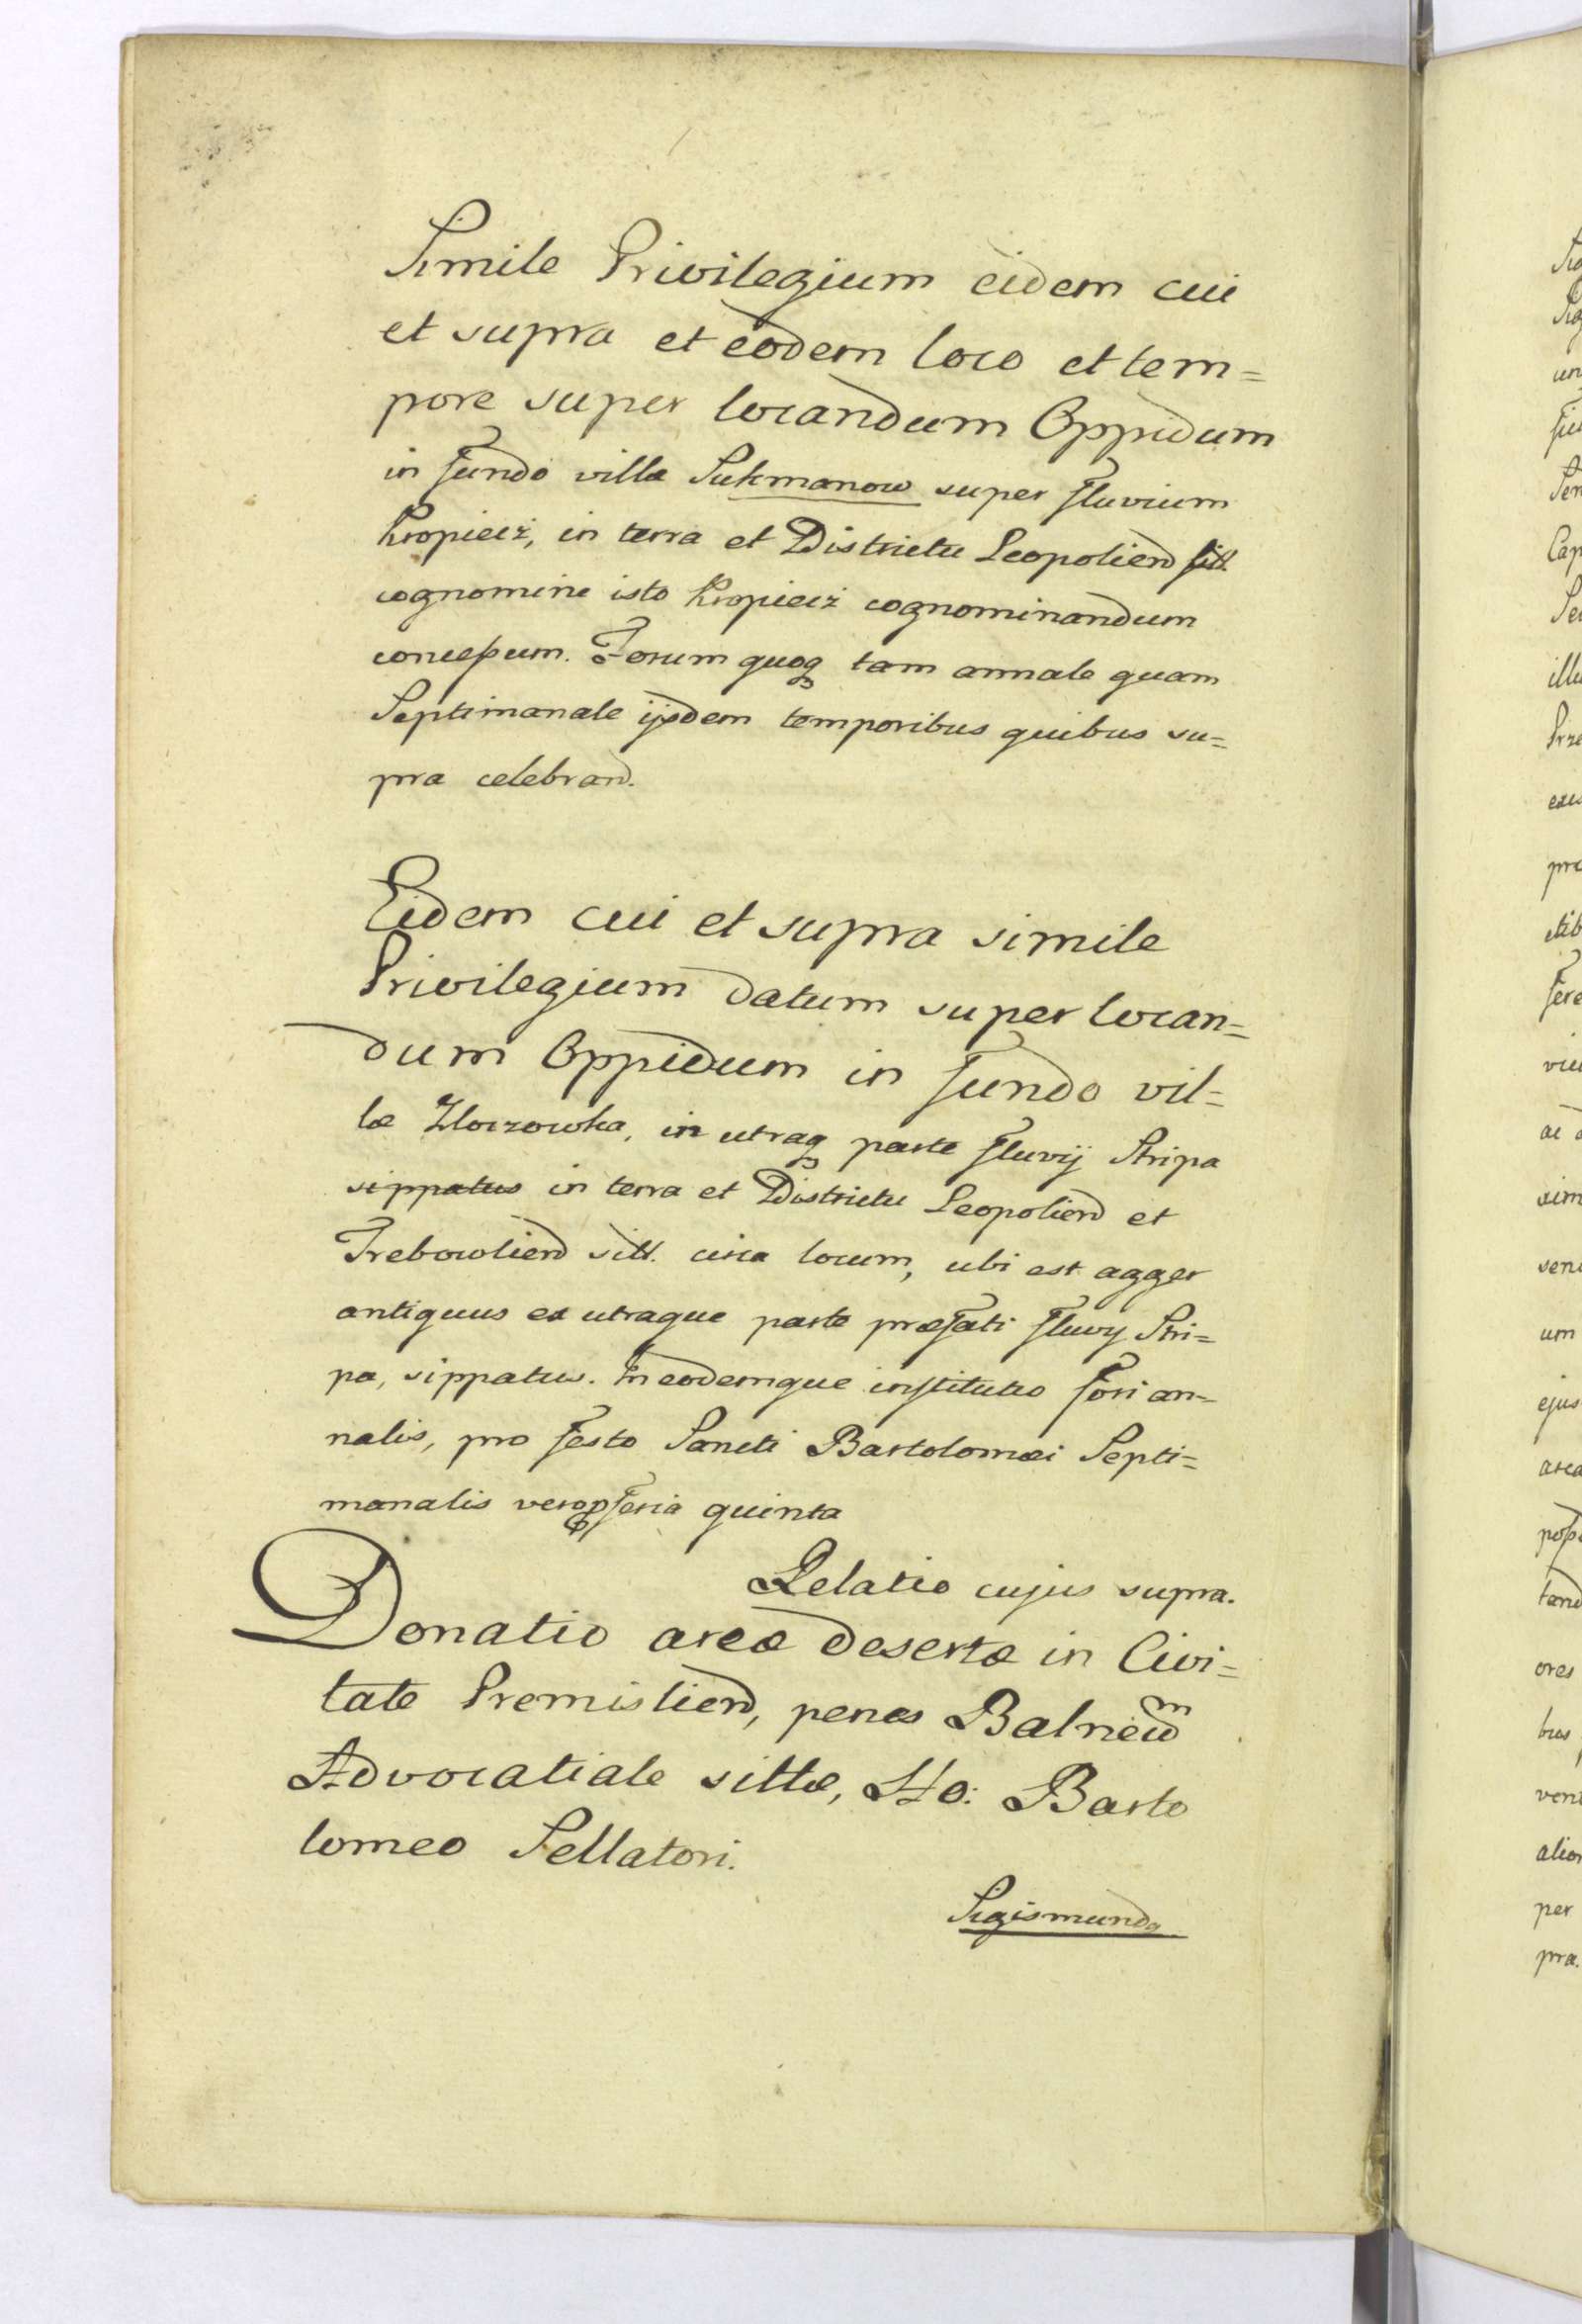 Simile Privilegium eidem cui
et supra et eodem loco et tem=
pore super locandum Oppidum
in fundo villæ Suhmanow super fluvium
Kropiecz, in terra et Districtu Leopolien sitt.
cognomine isto Kropiecz cognominandum
concessum. Forum quoq tam annale quam
Septimanale ijsdem temporibus quibus su=
pra celebrand.
Eidem cui et supra simile
Privilegium datum super locan=
dum Oppidum in fundo vil=
læ Zloczowka, in utraq parte fluvij Stripa
sippatus in terra et Districtu Leopolien et
Trebowlien sitt. circa locum, ubi est agger
antiquus ex utraque parte præfati fluvij Stri=
pa, sippatus. In eodemque institutio fori an=
nalis, pro festo Sancti Bartolomæi Septi=
manalis vero p feria quinta
Relatio cujus supra.
Donatio areæ desertæ in Civi=
tate Premislien, penes Balneum
Advocatiale sittæ, Ho: Barto
lomeo Sellatori.
Sigismundq